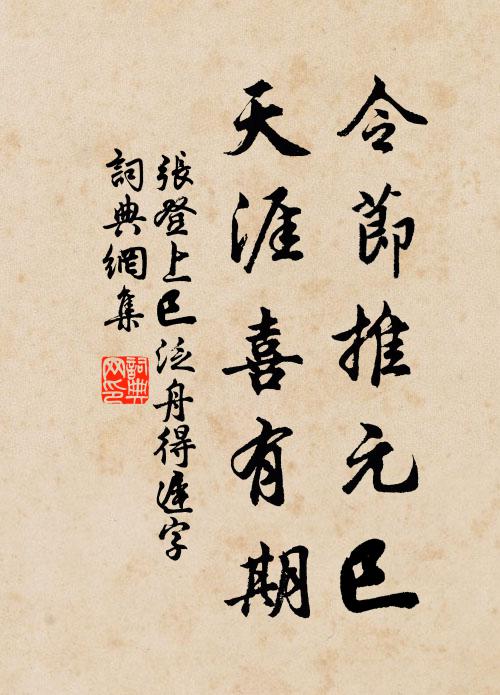 令節推元巳
天涯喜有期
張登上巳泛舟得遲字
詞典網集
詞典网印